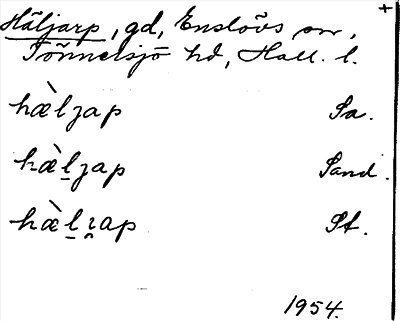 +
Häljarp, gd, Enslövs sn,
Tönnersjö hd, Hall. l.
hæ̀lȷap Sa.
hæ̀l̠ȷap Sand.
hæ̀l̠ı̯ap St.
1954.